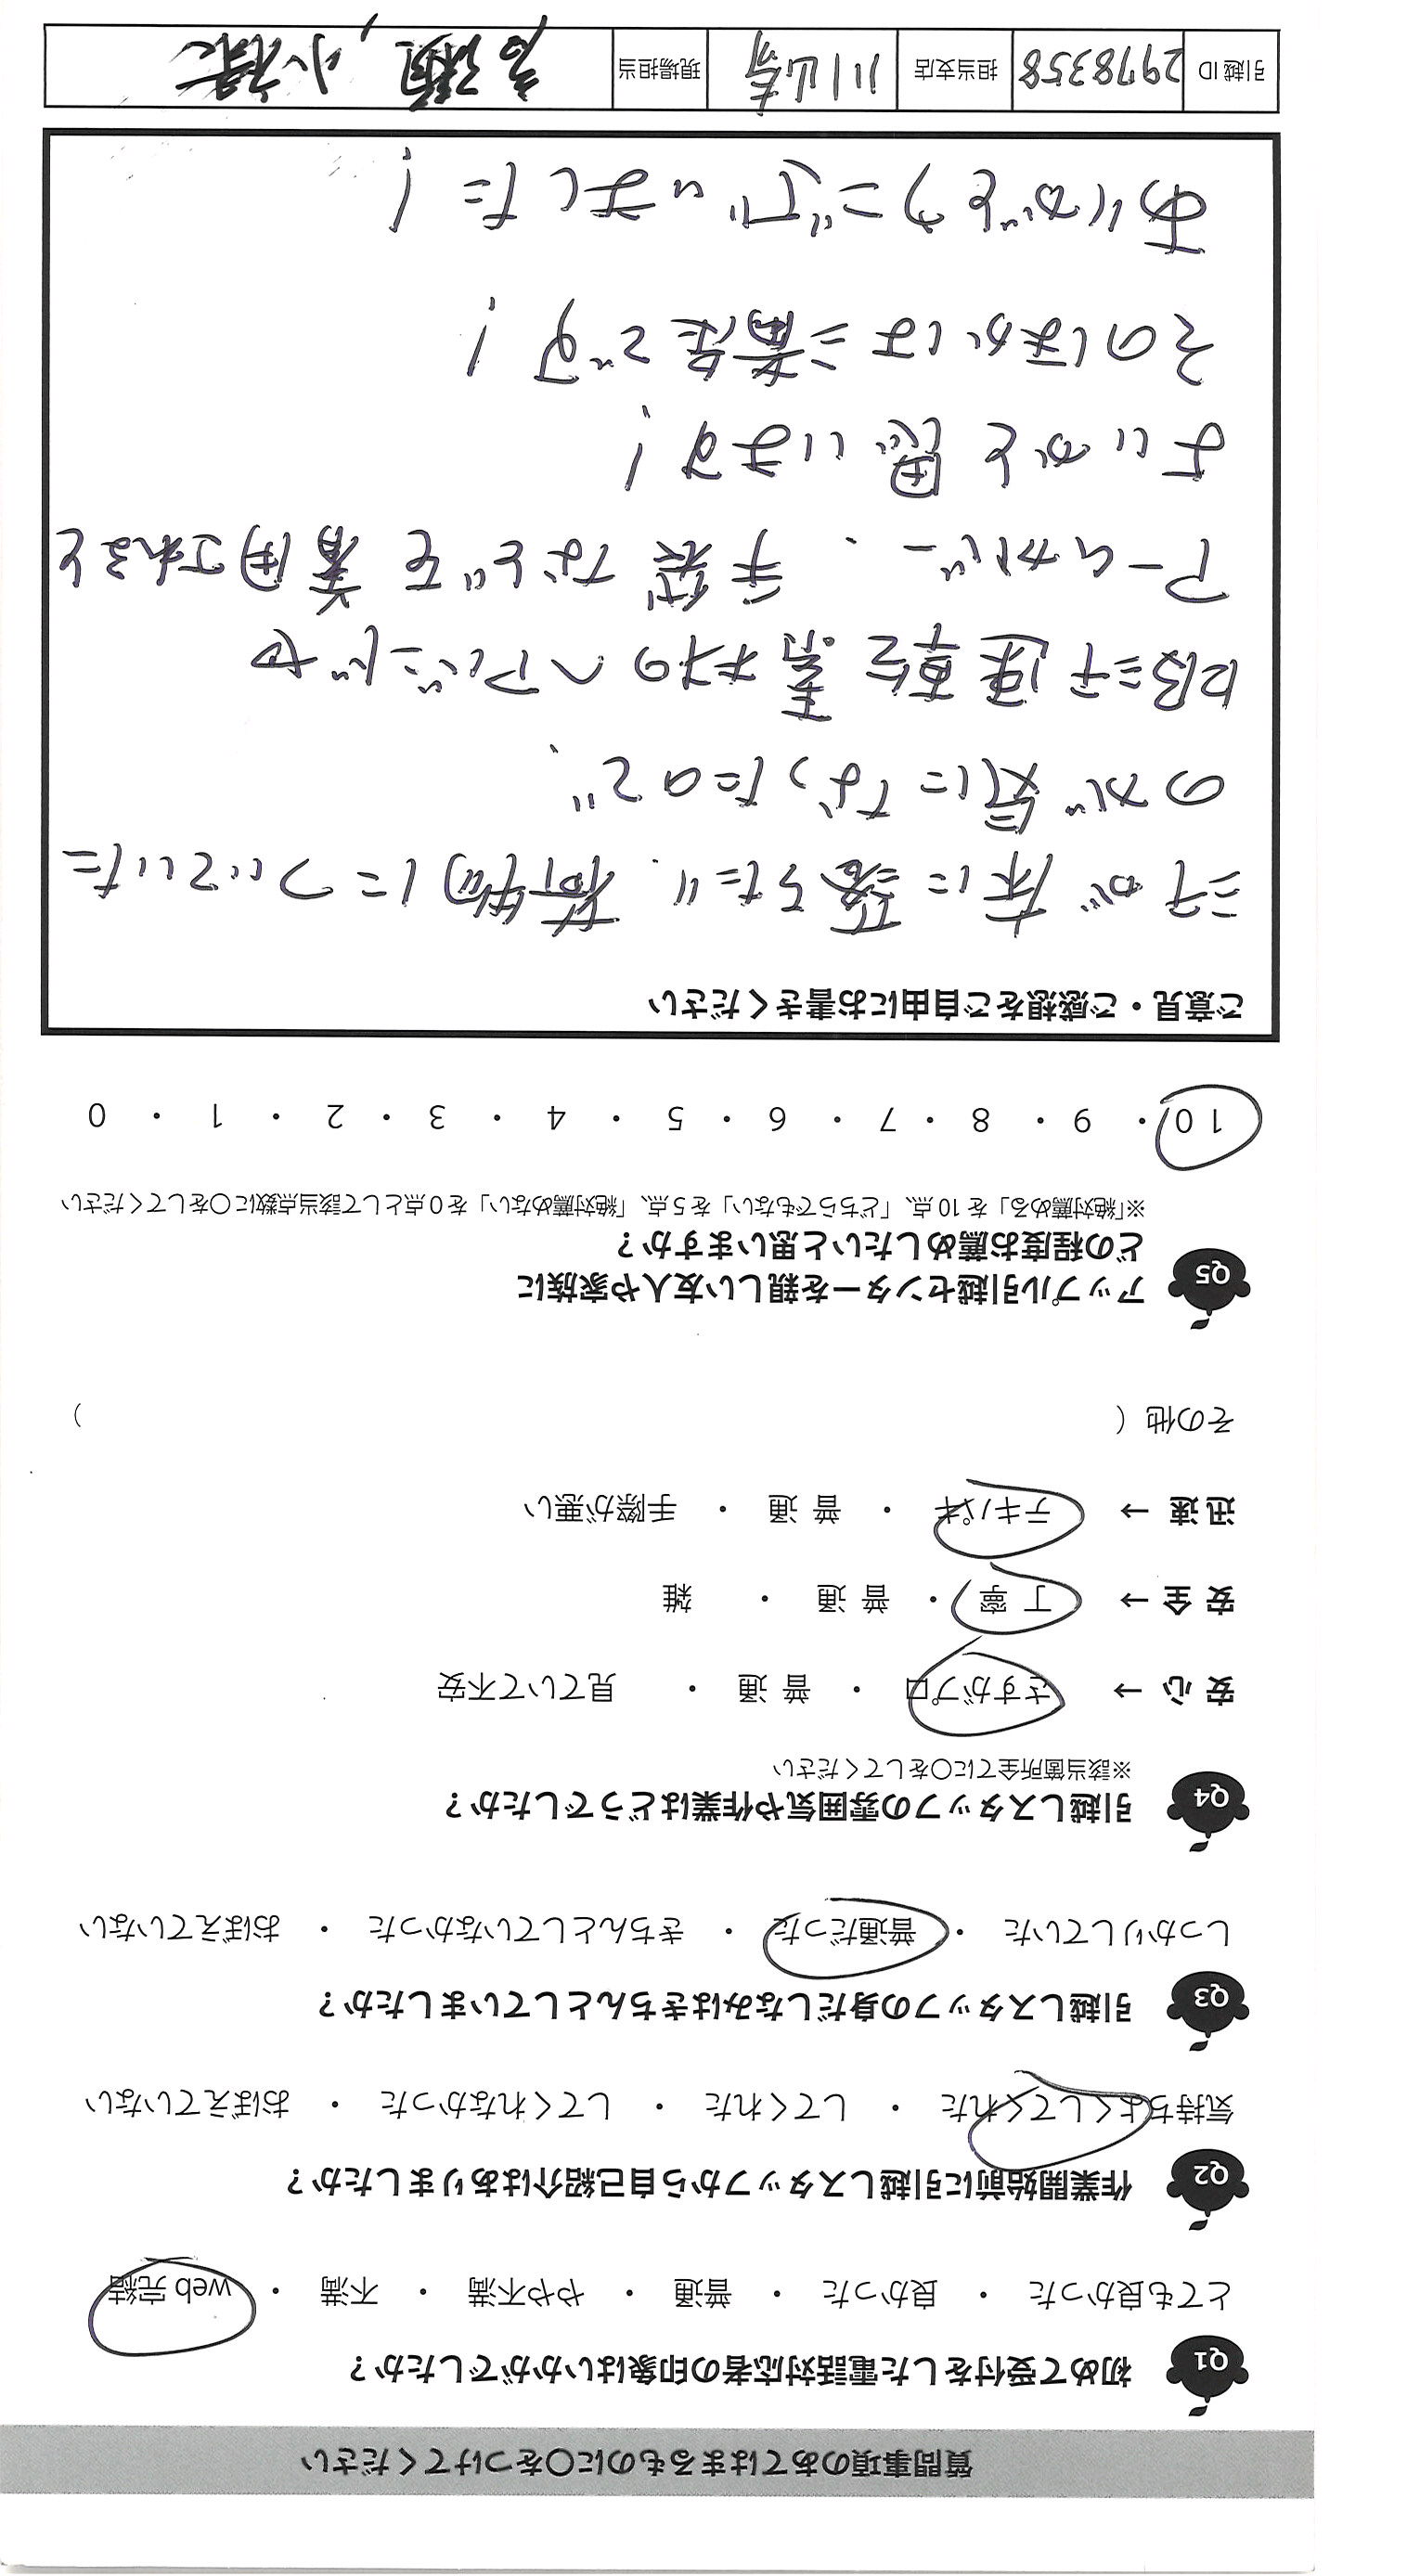 質問事項のあてはまるものに〇をつけてください
Q1 初めて受付をした電話対応者の印象はいかがでしたか？
とても良かった ・ 良かった ・ 普通 ・ やや不満 ・ 不満 ・ web 完結
Q2 作業開始前に引越しスタッフから自己紹介はありましたか？
気持ちよくしてくれた ・ してくれた ・ してくれなかった ・ おぼえていない
Q3 引越しスタッフの身だしなみはきちんとしていましたか？
しっかりしていた ・ 普通だった ・ きちんとしていなかった ・ おぼえていない
Q4 引越しスタッフの雰囲気や作業はどうでしたか？
※該当箇所全てに〇をしてください
安心 → さすがプロ ・ 普通 ・ 見ていて不安
安全 → 丁寧 ・ 普通 ・ 雑
迅速 → テキパキ ・ 普通 ・ 手際が悪い
その他（ ）
Q5 アップル引越センターを親しい友人や家族に
どの程度お薦めしたいと思いますか？
※「絶対薦める」を 10 点、「どちらでもない」を 5 点、「絶対薦めない」を 0 点として該当点数に〇をしてください
10 ・ 9 ・ 8 ・ 7 ・ 6 ・ 5 ・ 4 ・ 3 ・ 2 ・ 1 ・ 0
ご意見・ご感想をご自由にお書きください
汗が床に落ちたり、荷物についていた
のが気になったので、
配送運転業者のヘアバンドや
アームカバー、手袋などを着用されると
よいかと思います！
そのほかは満足です！
ありがとうございました！
引越ID 2978358 担当支店 川山寺 現場担当 高瀬, 小様